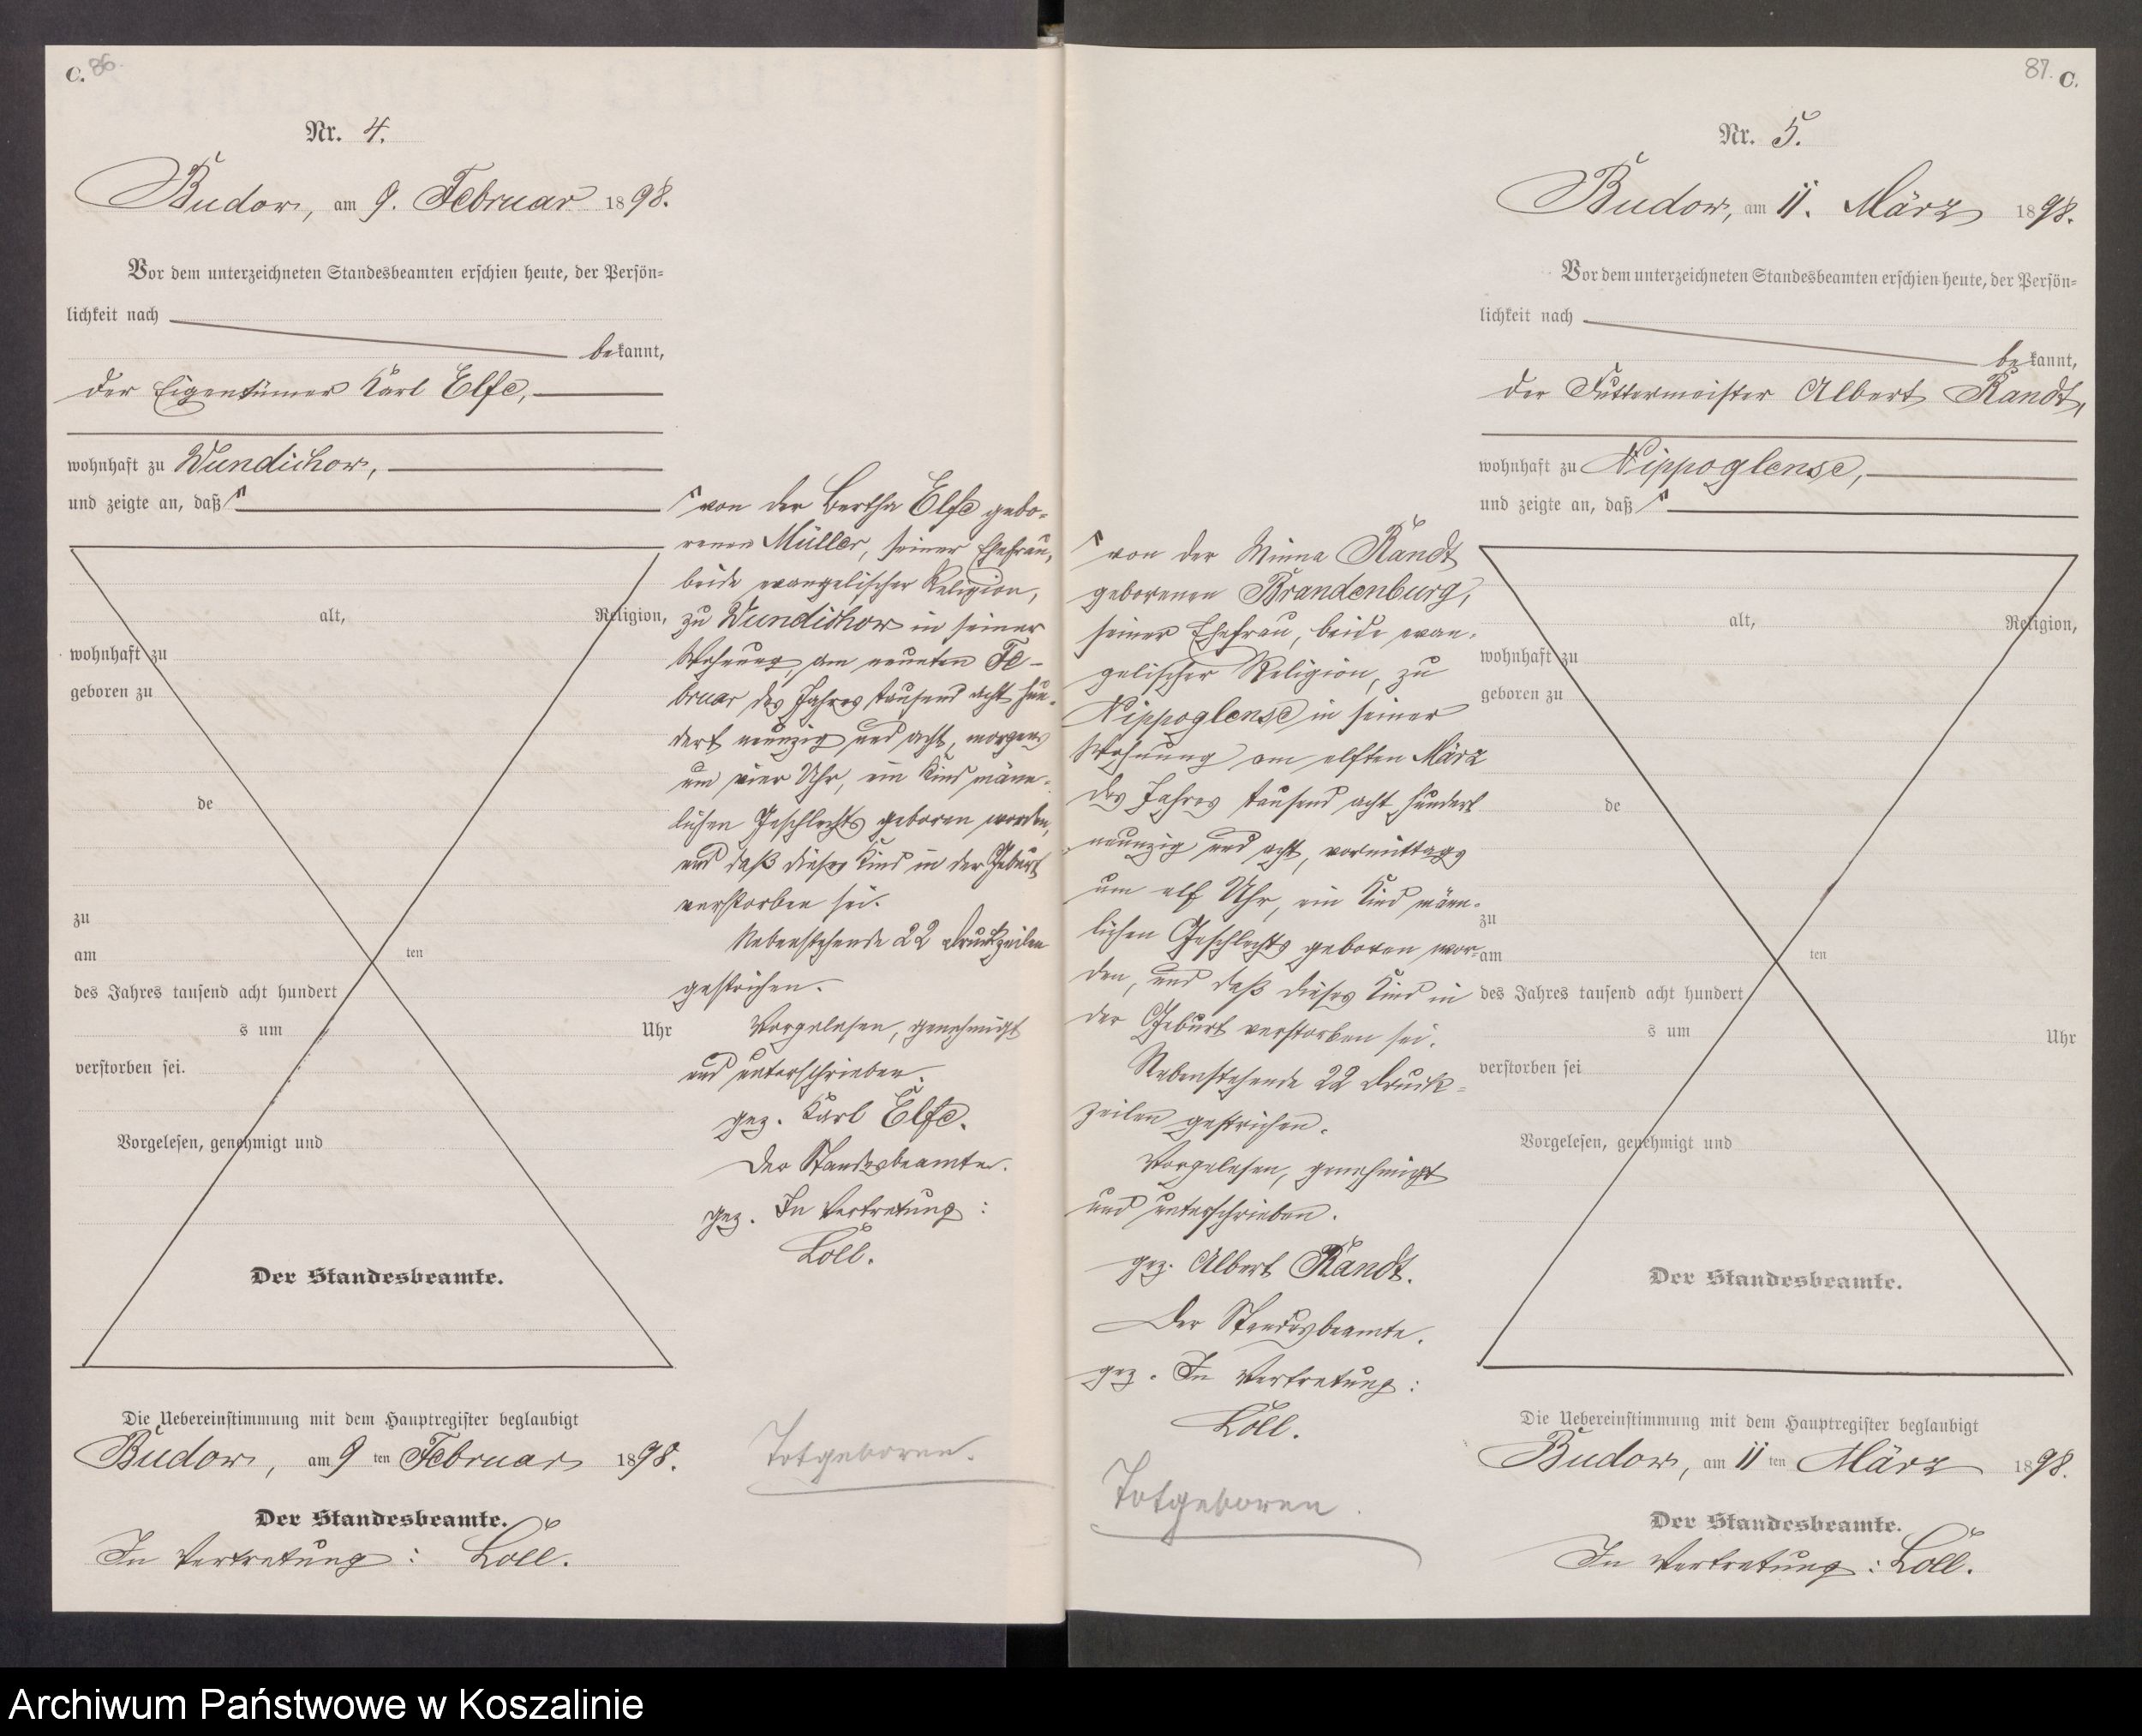 C. 86.
Nr. 4.
Budow, am 9. Februar 1898.
Vor dem unterzeichneten Standesbeamten erschien heute, der Persön-
lichkeit nach
bekannt,
der Eigentümer Karl Elfe,
wohnhaft zu Wundichow,
und zeigte an, daß
alt, Religion,
wohnhaft zu
geboren zu
de
zu
am ten
des Jahres tausend acht hundert
s um Uhr
verstorben sei.
Vorgelesen, genehmigt und
Der Standesbeamte.
Die Uebereinstimmung mit dem Hauptregister beglaubigt
Budow, am 9 ten Februar 1898.
Der Standesbeamte.
In Vertretung: Loll.
von der Bertha Elfe gebo-
renen Müller, seiner Ehefrau,
beide evangelischer Religion,
zu Wundichow in seiner
Wohnung, am neunten Fe-
bruar des Jahres tausend acht hun-
dert neunzig und acht, morgens
um vier Uhr, ein Kind männ-
lichen Geschlechts geboren worden,
und daß dieses Kind in der Geburt
verstorben sei.
Nebenstehende 22 Druckzeilen
gestrichen.
Vorgelesen, genehmigt
und unterschrieben.
gez. Karl Elfe.
Der Standesbeamte.
gez. In Vertretung:
Loll.
Totgeboren.
87. C.
Nr. 5.
Budow, am 11. März 1898.
Vor dem unterzeichneten Standesbeamten erschien heute, der Persön-
lichkeit nach
bekannt,
der Futtermeister Albert Randt,
wohnhaft zu Nippoglense,
und zeigte an, daß
von der Minna Randt
geborenen Brandenburg,
seiner Ehefrau, beide evan-
gelischer Religion, zu
Nippoglense in seiner
Wohnung am elften März
des Jahres tausend acht hundert
neunzig und acht, vormittags
um elf Uhr, ein Kind männ-
lichen Geschlechts geboren wor-
den, und daß dieses Kind in
der Geburt verstorben sei.
Nebenstehende 22 Druck-
zeilen gestrichen.
Vorgelesen, genehmigt
und unterschrieben.
gez. Albert Randt.
Der Standesbeamte.
gez. In Vertretung:
Loll.
Totgeboren.
alt, Religion,
wohnhaft zu
geboren zu
de
zu
am ten
des Jahres tausend acht hundert
s um Uhr
verstorben sei
Vorgelesen, genehmigt und
Der Standesbeamte.
Die Uebereinstimmung mit dem Hauptregister beglaubigt
Budow, am 11 ten März 1898.
Der Standesbeamte.
In Vertretung: Loll.
Archiwum Państwowe w Koszalinie